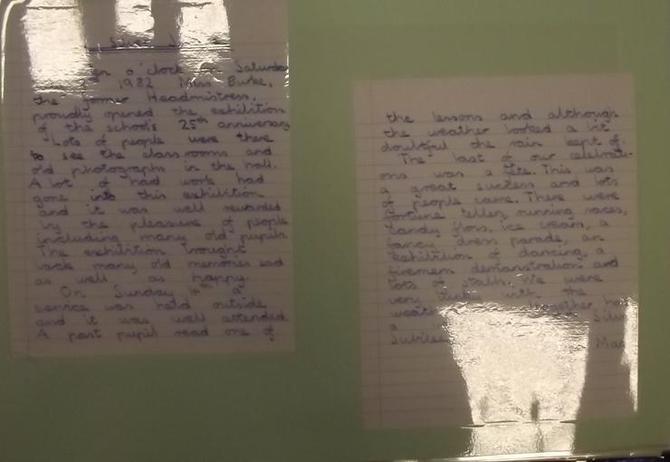 Silver
o'clock on Saturday
1982 Miss Burke,
the former Headmistress,
proudly opened the exhibition
of the schools 25th anniversary
Lots of people were there
to see the classrooms and
old photographs in the hall.
A lot of hard work had
gone into this exhibition
and it was well rewarded
by the pleasure of people
including many old pupils.
The exhibition brought
back many old memories sad
as well as happy.
On Sunday a
service was held outside
and it was well attended.
A past pupil read one of
the lessons and although
the weather looked a bit
doubtful the rain kept of.
The last of our celebrati-
ons was a fête. This was
a great success and lots
of people came. There were
fortune teller, running races,
Candy floss, ice cream, a
fancy dress parade, an
exhibition of dancing, a
firemens demonstration and
lots of stalls. We were
very with the
weath
a Silv
Jubilee